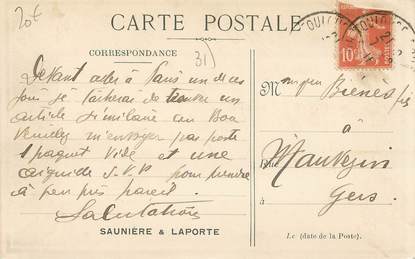 20f
CARTE POSTALE
CORRESPONDANCE
31
Devant aller à Paris un de ces
jours je tâcherai de trouver un
article similaire au Bon
Veuillez m'envoyer par poste
1 paquet vide et une
aiguide S.V.P pour prendre
à peu près pareil.
Salutations
SAUNIÈRE & LAPORTE
10
M
Bienes fils
à
Rue Mauvezin
Gers
Le (date de la Poste).